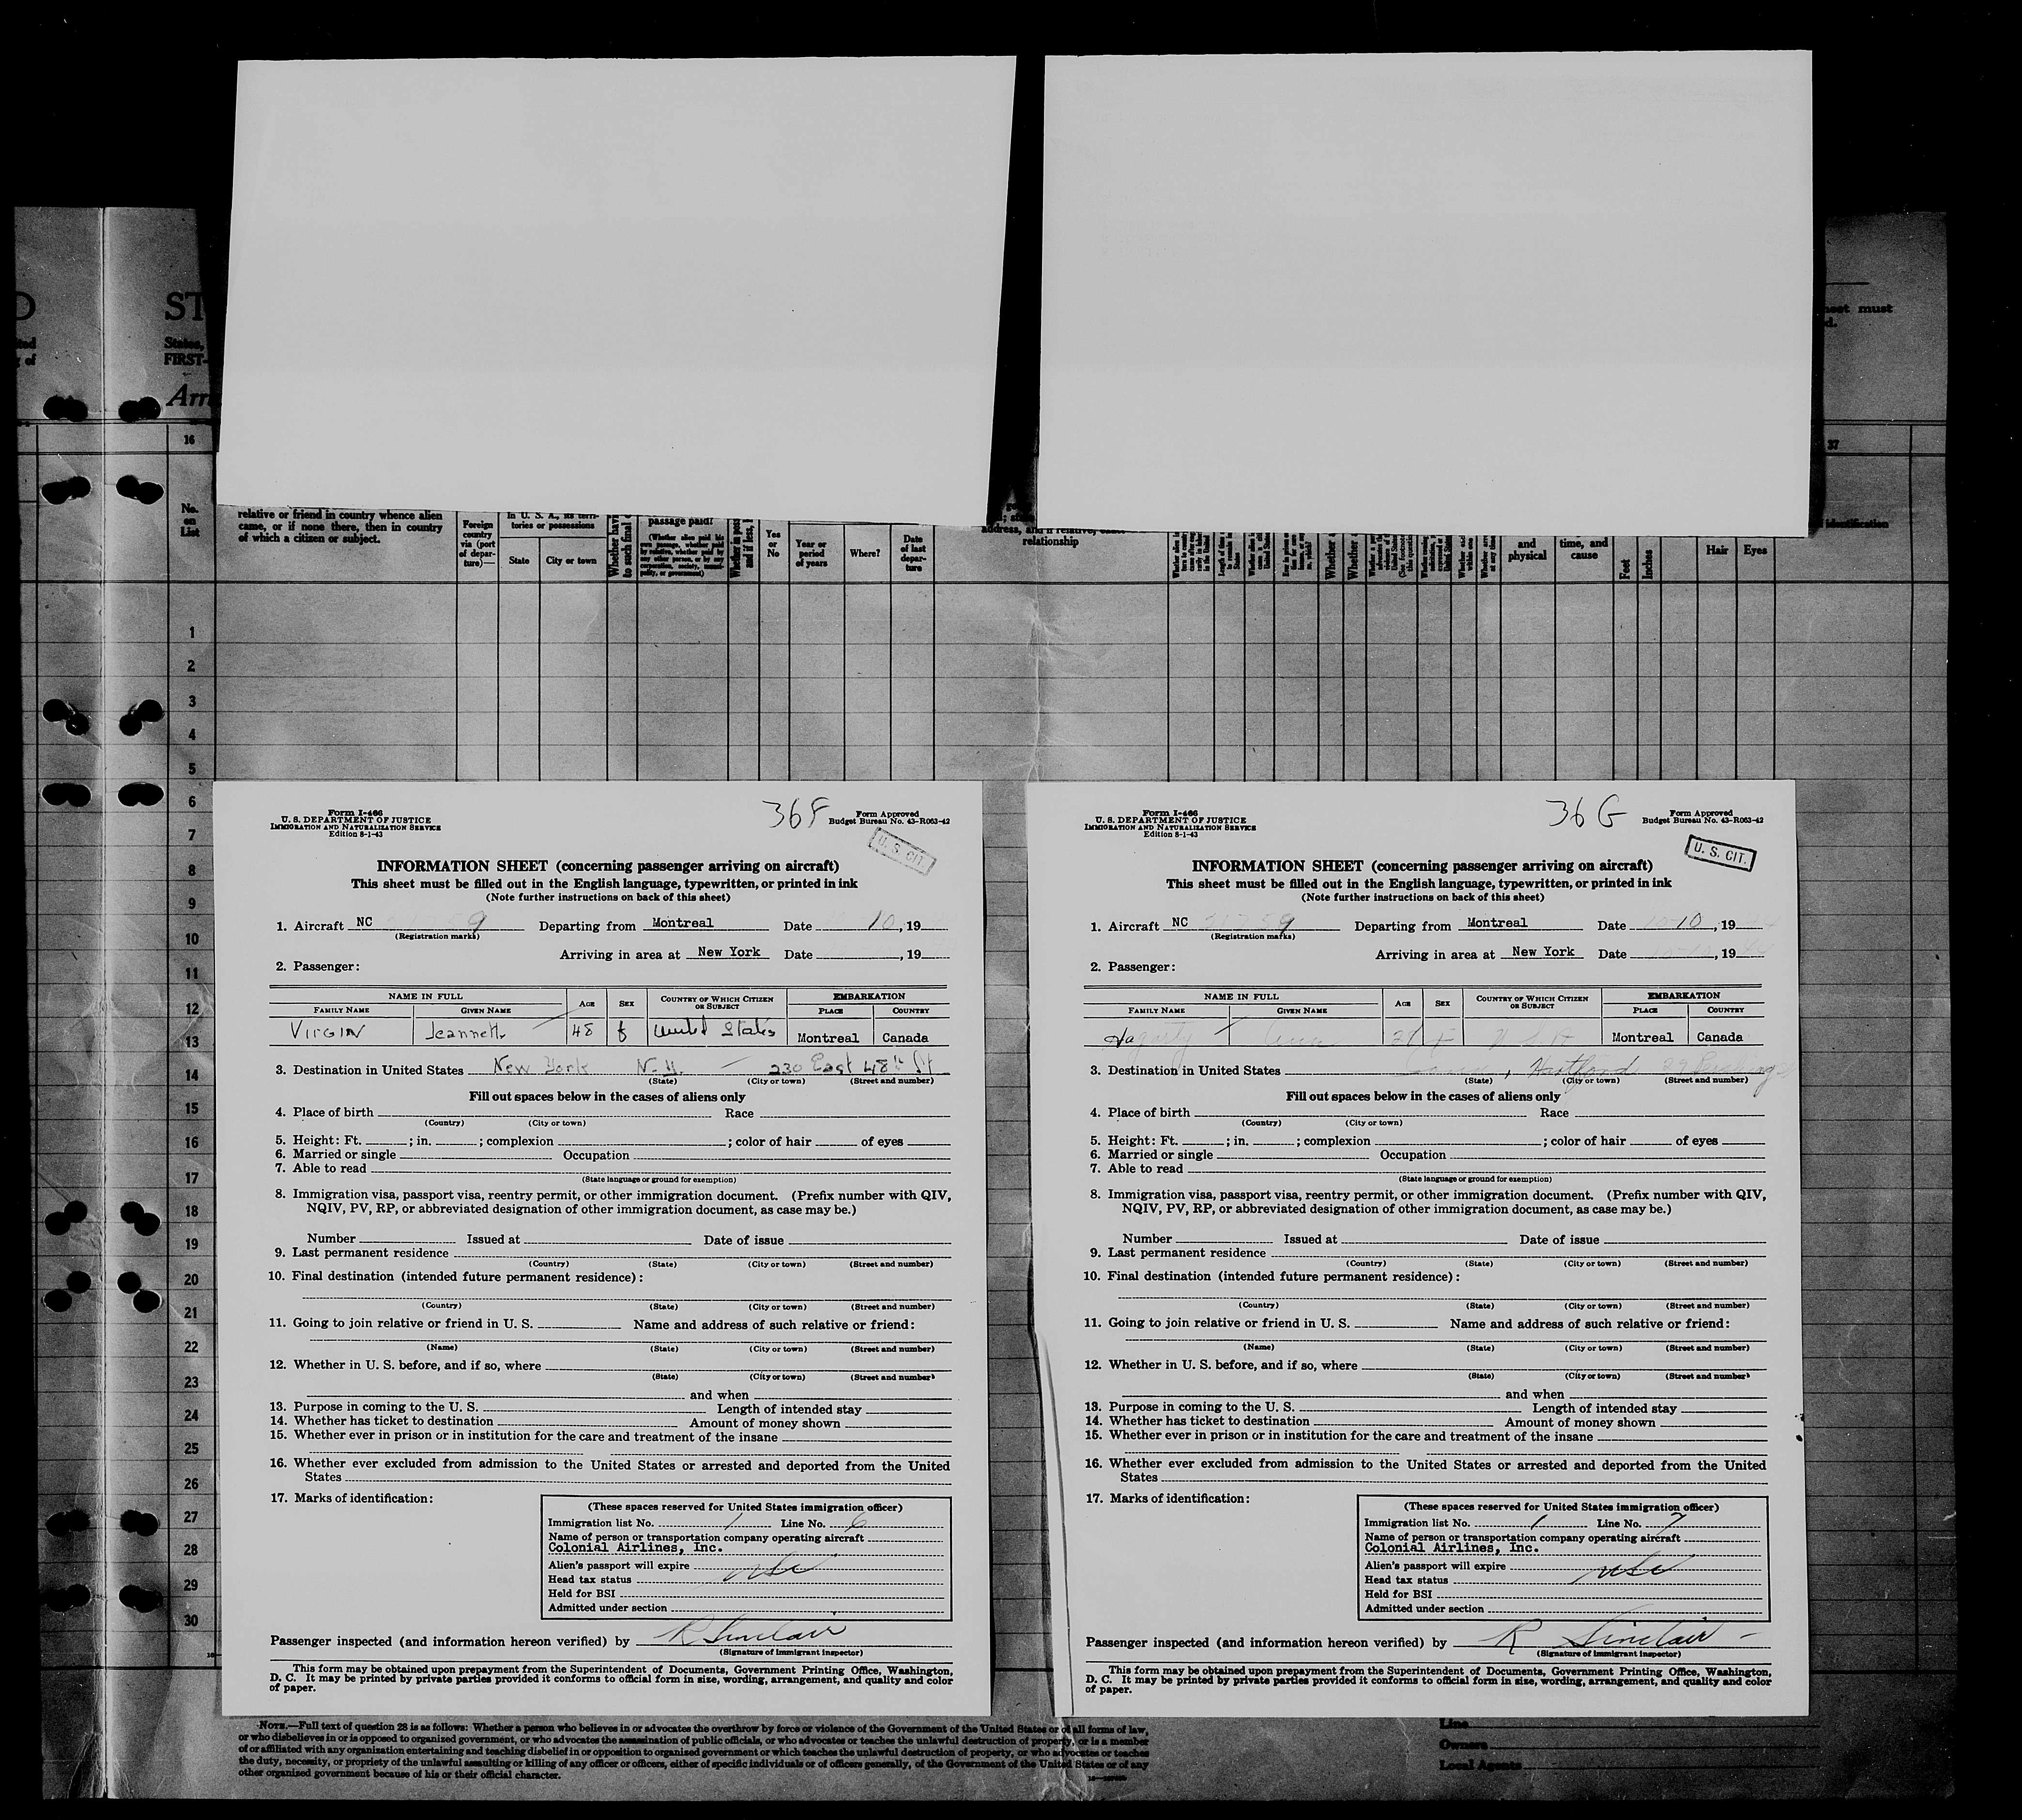 D
ST
ited
States,
g of
FIRST-
Arri
neet must
d.
16
37
No.
on
List
relative or friend in country whence alien
came, or if none there, then in country
of which a citizen or subject.
Foreign
country
via (port
of depar-
ture)—
In U. S. A., its terri-
tories or possessions
State
City or town
Whether havi
to such final d
passage paid?
(Whether alien paid his
own passage, whether paid
by relative, whether paid by
any other person, or by any
corporation, society, munici-
pality, or government)
Whether in poss
and if less, h
Yes
or
No
Year or
period
of years
Where?
Date
of last
depar-
ture
address, and if relative, exact
relationship
and
physical
time, and
cause
Feet
Inches
Hair
Eyes
identification
1
2
3
4
5
6
7
8
9
10
11
12
13
14
15
16
17
18
19
20
21
22
23
24
25
26
27
28
29
30
Form I-466
U. S. DEPARTMENT OF JUSTICE
IMMIGRATION AND NATURALIZATION SERVICE
Edition 8-1-43
36F
Form Approved
Budget Bureau No. 43-R063-42
U. S. CIT.
INFORMATION SHEET (concerning passenger arriving on aircraft)
This sheet must be filled out in the English language, typewritten, or printed in ink
(Note further instructions on back of this sheet)
1. Aircraft NC 9 Departing from Montreal Date 10, 19
(Registration marks)
Arriving in area at New York Date , 19
2. Passenger:
NAME IN FULL
AGE
SEX
COUNTRY OF WHICH CITIZEN
OR SUBJECT
EMBARKATION
FAMILY NAME
GIVEN NAME
PLACE
COUNTRY
VIRGIN Jeannette 48 f United States Montreal Canada
3. Destination in United States New York N.Y. — 230 East 48th St
(State) (City or town) (Street and number)
Fill out spaces below in the cases of aliens only
4. Place of birth Race
(Country) (City or town)
5. Height: Ft. ; in. ; complexion ; color of hair of eyes
6. Married or single Occupation
7. Able to read
(State language or ground for exemption)
8. Immigration visa, passport visa, reentry permit, or other immigration document. (Prefix number with QIV,
NQIV, PV, RP, or abbreviated designation of other immigration document, as case may be.)
Number Issued at Date of issue
9. Last permanent residence
(Country) (State) (City or town) (Street and number)
10. Final destination (intended future permanent residence):
(Country) (State) (City or town) (Street and number)
11. Going to join relative or friend in U. S. Name and address of such relative or friend:
(Name) (State) (City or town) (Street and number)
12. Whether in U. S. before, and if so, where
(State) (City or town) (Street and number)
and when
13. Purpose in coming to the U. S. Length of intended stay
14. Whether has ticket to destination Amount of money shown
15. Whether ever in prison or in institution for the care and treatment of the insane
16. Whether ever excluded from admission to the United States or arrested and deported from the United
States
17. Marks of identification:
(These spaces reserved for United States immigration officer)
Immigration list No. 1 Line No. 6
Name of person or transportation company operating aircraft
Colonial Airlines, Inc.
Alien's passport will expire
usc
Head tax status
Held for BSI
Admitted under section
Passenger inspected (and information hereon verified) by R Sinclair
(Signature of immigrant inspector)
This form may be obtained upon prepayment from the Superintendent of Documents, Government Printing Office, Washington,
D. C. It may be printed by private parties provided it conforms to official form in size, wording, arrangement, and quality and color
of paper.
Form I-466
U. S. DEPARTMENT OF JUSTICE
IMMIGRATION AND NATURALIZATION SERVICE
Edition 8-1-43
36 G
Form Approved
Budget Bureau No. 43-R063-42
U. S. CIT.
INFORMATION SHEET (concerning passenger arriving on aircraft)
This sheet must be filled out in the English language, typewritten, or printed in ink
(Note further instructions on back of this sheet)
1. Aircraft NC 21759 Departing from Montreal Date 10-10, 19
(Registration marks)
Arriving in area at New York Date , 19
2. Passenger:
NAME IN FULL
AGE
SEX
COUNTRY OF WHICH CITIZEN
OR SUBJECT
EMBARKATION
FAMILY NAME
GIVEN NAME
PLACE
COUNTRY
Hagarty F Montreal Canada
3. Destination in United States Conn, Hartford
(State) (City or town) (Street and number)
Fill out spaces below in the cases of aliens only
4. Place of birth Race
(Country) (City or town)
5. Height: Ft. ; in. ; complexion ; color of hair of eyes
6. Married or single Occupation
7. Able to read
(State language or ground for exemption)
8. Immigration visa, passport visa, reentry permit, or other immigration document. (Prefix number with QIV,
NQIV, PV, RP, or abbreviated designation of other immigration document, as case may be.)
Number Issued at Date of issue
9. Last permanent residence
(Country) (State) (City or town) (Street and number)
10. Final destination (intended future permanent residence):
(Country) (State) (City or town) (Street and number)
11. Going to join relative or friend in U. S. Name and address of such relative or friend:
(Name) (State) (City or town) (Street and number)
12. Whether in U. S. before, and if so, where
(State) (City or town) (Street and number)
and when
13. Purpose in coming to the U. S. Length of intended stay
14. Whether has ticket to destination Amount of money shown
15. Whether ever in prison or in institution for the care and treatment of the insane
16. Whether ever excluded from admission to the United States or arrested and deported from the United
States
17. Marks of identification:
(These spaces reserved for United States immigration officer)
Immigration list No. 1 Line No. 7
Name of person or transportation company operating aircraft
Colonial Airlines, Inc.
Alien's passport will expire
usc
Head tax status
Held for BSI
Admitted under section
Passenger inspected (and information hereon verified) by R Sinclair
(Signature of immigrant inspector)
This form may be obtained upon prepayment from the Superintendent of Documents, Government Printing Office, Washington,
D. C. It may be printed by private parties provided it conforms to official form in size, wording, arrangement, and quality and color
of paper.
NOTE.—Full text of question 28 is as follows: Whether a person who believes in or advocates the overthrow by force or violence of the Government of the United States or of all forms of law,
or who disbelieves in or is opposed to organized government, or who advocates the assassination of public officials, or who advocates or teaches the unlawful destruction of property, or is a member
of or affiliated with any organization entertaining and teaching disbelief in or opposition to organized government or which teaches the unlawful destruction of property, or who advocates or teaches
the duty, necessity, or propriety of the unlawful assaulting or killing of any officer or officers, either of specific individuals or of officers generally, of the Government of the United States or of any
other organized government because of his or their official character.
Line
Owners
Local Agents